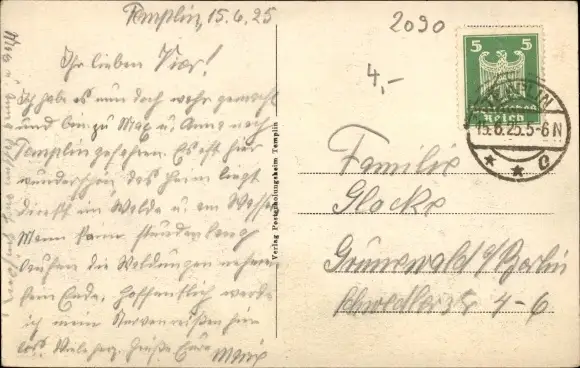 Templin, 15.6.25
Ihr lieben Vier!
Ich habe es nun doch wahr gemacht
und bin zu Max u. Anna nach
Templin gefahren. Es ist hier
wunderschön das Heim liegt
direkt im Walde u. am Wasser
Mann kann stundenlang
laufen die Waldungen nehmen
kein Ende. Hoffentlich werde
ich meine Nervenreißen hier
los. Viele herz. Grüße Eure
Verlag Posterholungsheim Templin
2090
4,-
5 5
Deutsches
Reich
TEMPLIN
15.6.25.5-6N
* * c
Familie
Glocke
Grunewald b/Berlin
4-6